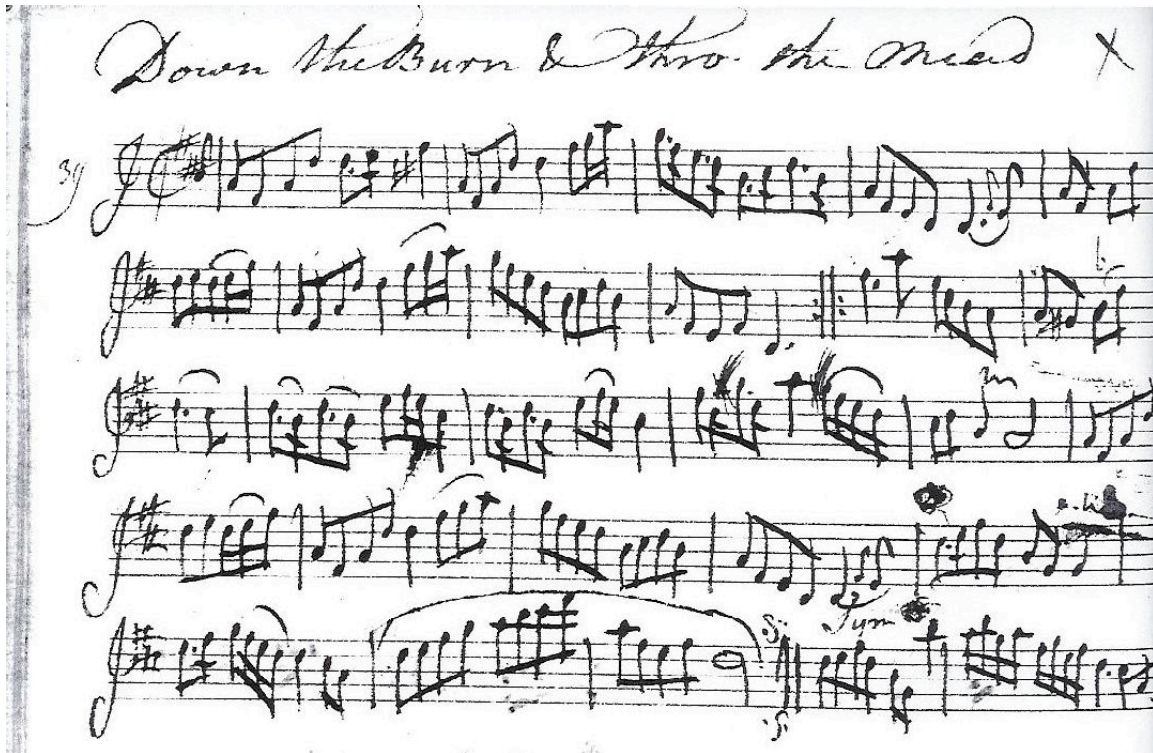 Down the Burn & thro. the Mead X
39
Sym
:S:
:S: